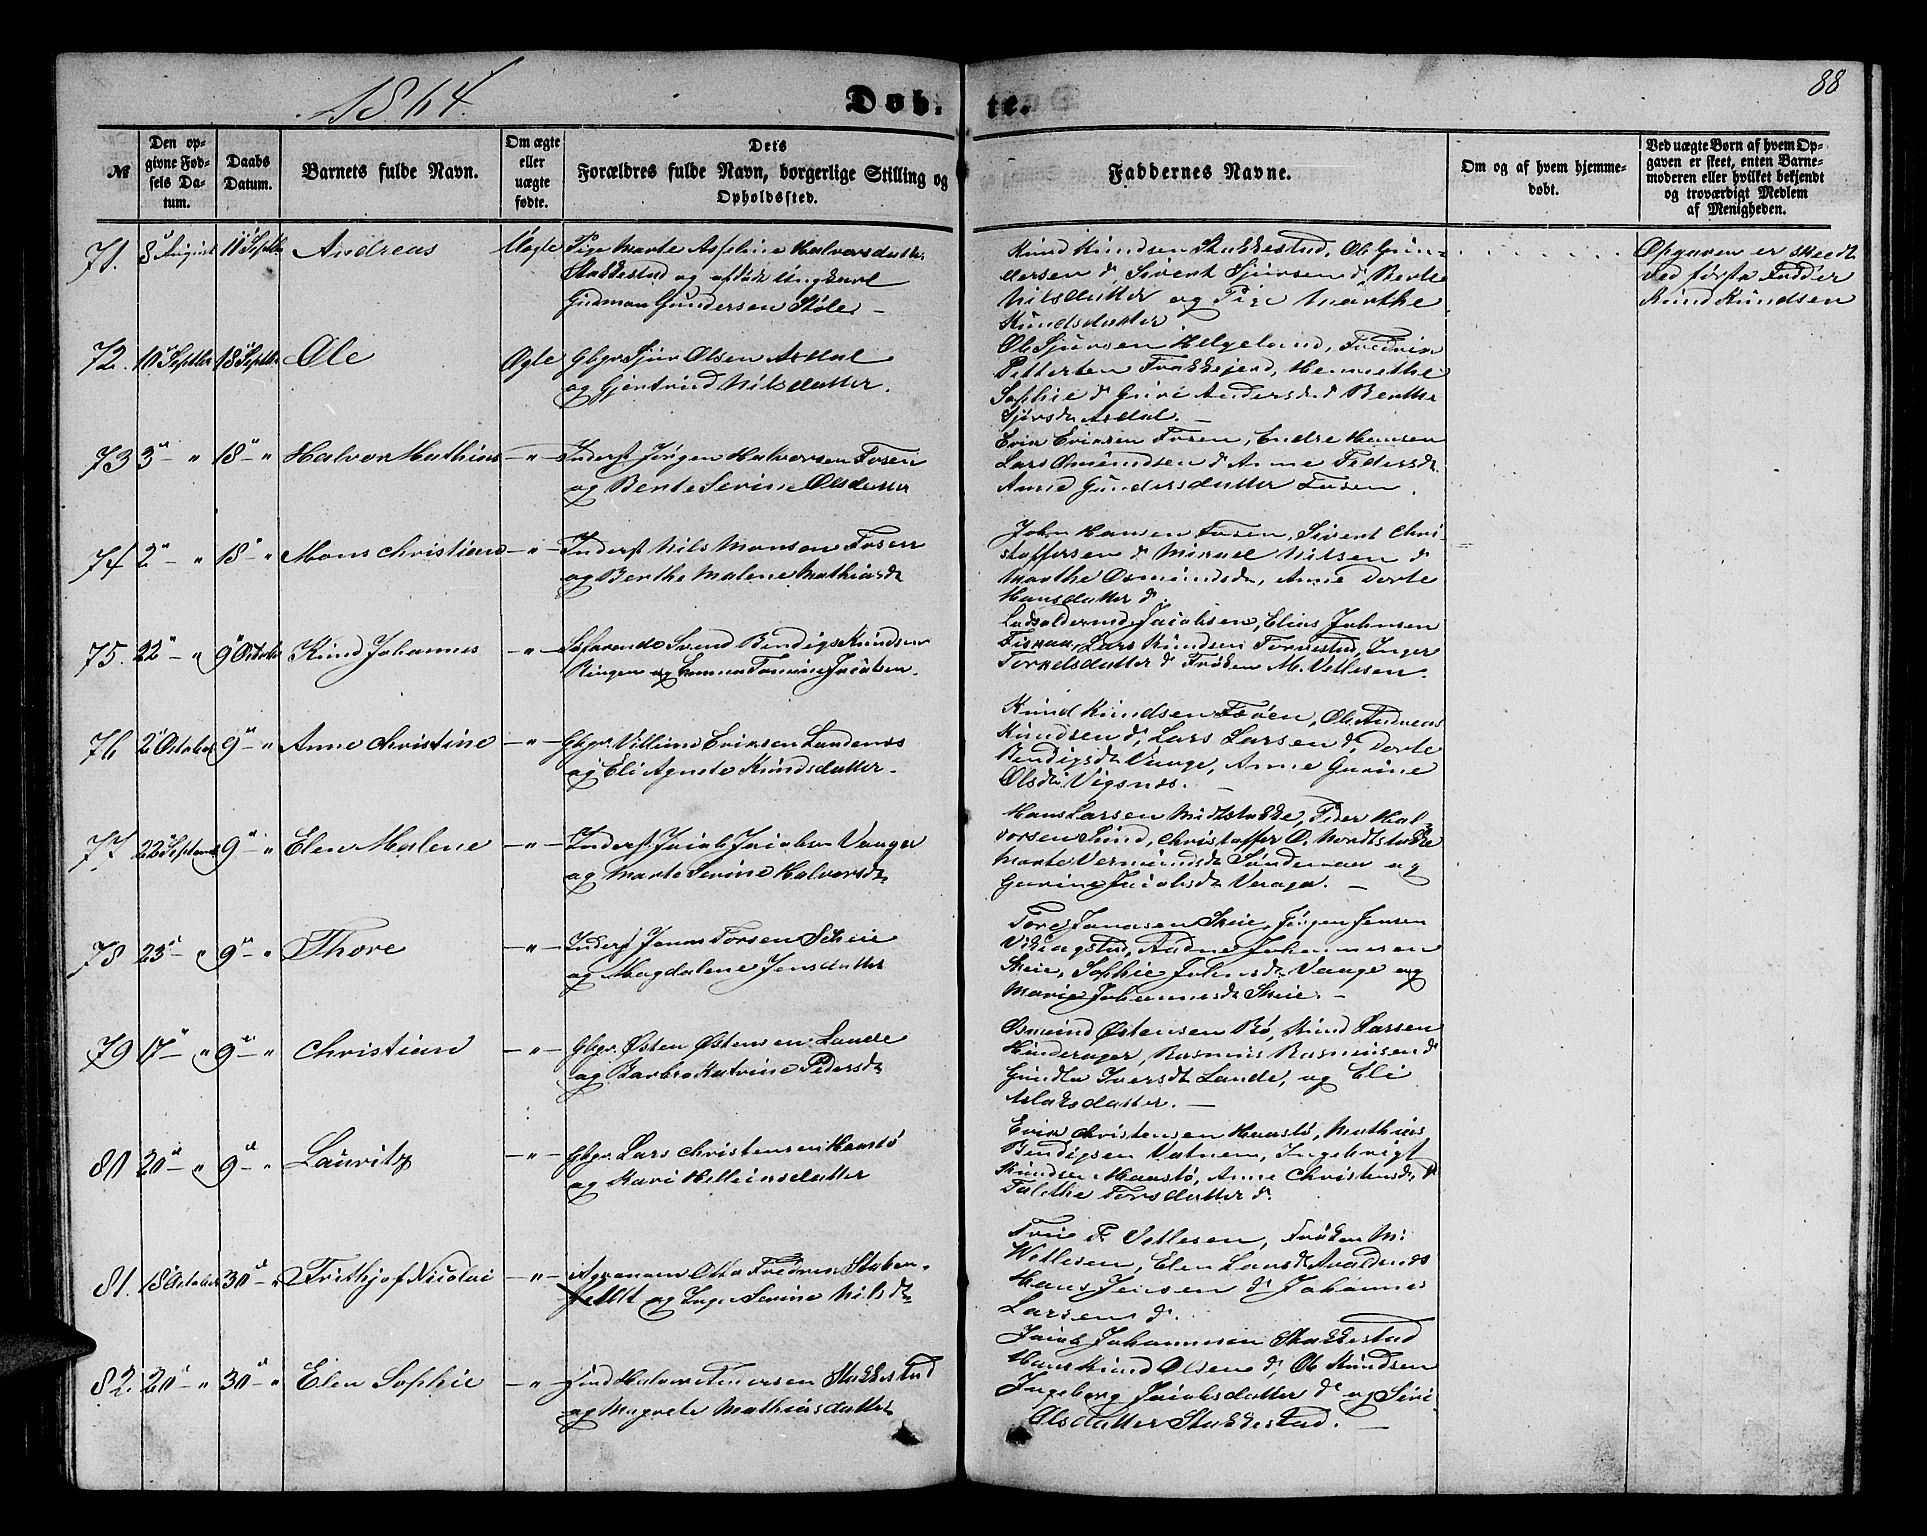 1864.
Døb-
te.
88
№
Den op-
givne Fød-
sels Da-
tum.
Daabs
Datum.
Barnets fulde Navn.
Om ægte
eller
uægte
fødte.
Dets
Forældres fulde Navn, borgerlige Stilling og
Opholdssted.
Faddernes Navne.
Om og af hvem hjemme-
døbt.
Ved uægte Børn af hvem Op-
gaven er skeet, enten Barne-
moderen eller hvilket bekjendt
og troværdigt Medlem
af Menigheden.
71. 8 August 11 Septbr Andreas Uægte Pige Marte Halvorsdatter
Stakkestad og Ungkarl
Gudman Gundersen Støle -
Knud Knudsen Stakkestad, Ole Gun-
dersen do, Sivert Sjursen do, Berte
Nilsdatter og Pige Marthe
Knudsdatter
Opgaven er skeedt
ved første Fadder
Knud Knudsen
72. 10 Septbr 18 Septbr Ole Ægte Gbgr Sjur Olsen Asdal
og Gjertrud Nilsdatter.
Ole Sjursen Helgeland, Fredrik
Pettersen Henrethe
Sophie do Guri Andersd. do Berthe
Sjursdr Asdal. -
73 3 - " 18 - " Halvor Mathias - " - Inderst Jörgen Halvorsen Fosen
og Berte Serine Olsdatter
Erik Eriksen Fosen, Endre Hansen
Lars Osmundsen do Anne Pedersdr
Anne Gundersdatter Fosen.
74 2 - " 18 - " Mons Christian - " - Inderst Nils Monsen Fosen
og Berthe Malene Mathiasdr
John Hansen Fosen, Sivert Chri-
stoffersen do Mikael Nilsen do
Marthe Osmundsdr, Anne Dorte
Hansdatter do.
75. 22 - " 9 October Knud Johannes - " - Søfarende Svend Bendigt Knudsen
Ringen og Jacobsen.
Jacobsen, Elias Johnsen
Lars Knudsen Tornestad, Inger
Torkelsdatter do Frøken M. Vetlesen.
76 2 October 9 - " Anne Christine - " - Gbgr. Villum Eriksen Landenes
og Eli Agnete Knudsdatter.
Knud Knudsen Føøen, Ole Andreas
Knudsen do, Lars Larsen do, Dorte
Bendigsdr Vaage, Anne Gurine
Olsdr Vigsnes. -
77. 22 Septemb 9 - " Elen Malene - " - Inderst Jacob Jacobsen Vaage
og Marte Serine Halvorsdr
Hans Larsen Midtstokke, Peder Hal-
vorsen Sund, Christoffer O. Nordtstokke
Marte Vermundsdr Søndenaa og
Gurine Jacobsdr Vaage. -
78 25 - " 9 - " Thore - " - Inderst Jonas Torsen Scheie
og Magdalene Jensdatter
Tore Jonasen Skeie, Jörgen Jensen
Vikingstad, Aadne Johannesen
Skeie, Sophie Johnsdr Vaage og
Marie Johannesdr Skeie. -
79 17 - " 9 - " Christian - " - Gbgr. Østen Østensen Lande
og Barbro Katrine Pedersdr
Osmund Østensen Bø, Knud Larsen
Hinderager, Rasmus Rasmusen do
Gundla Iversdr Lande, og Eli
Aslaksdatter. -
80 20 - " 9 - " Lauritz - " - Gbgr. Lars Christensen Haastø
og Kari Helleinsdatter
Erik Christensen Haastø, Mathias
Bendigsen Vatnem, Ingebrigt
Knudsen Haastø, Anne Christensdr do
Talethe Torsdatter do.
81. 18 October 30 - " Frithjof Nicolai - " - Agronom Otto Fredrik Staben-
feldt og Inger Serine Nilsdr
P. Vetlesen, Frøken M.
Wetlesen, Elen Larsdr Avaldsnes
Hans Jensen do Johannes
Larsen do.
82. 20 - " 30 - " Elen Sophie - " - Halvor Stakkestad
og Magrete Mathiasdatter
Jacob Johannesen Stakkestad
Hans Knud Olsen do, Ole Knudsen
Ingeborg Jacobsdatter do og Siri
Olsdatter Stakkestad. -